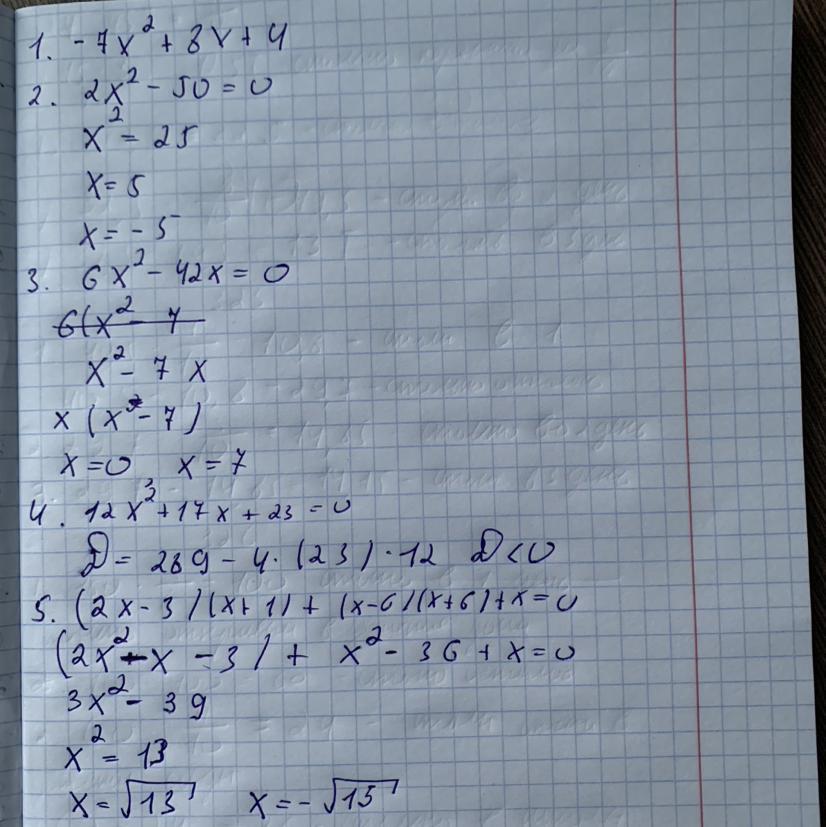 1. -7x² + 8x + 4
2. 2x² - 50 = 0
x² = 25
x = 5
x = -5
3. 6x² - 42x = 0
6(x² - 7
x² - 7 x
x (x - 7)
x = 0 x = 7
4. 12x² + 17x + 23 = 0
D = 289 - 4 · (23) · 12 D < 0
5. (2x - 3)(x + 1) + (x - 6)(x + 6) + x = 0
(2x² - x - 3) + x² - 36 + x = 0
3x² - 39
x² = 13
x = √13 x = -√13